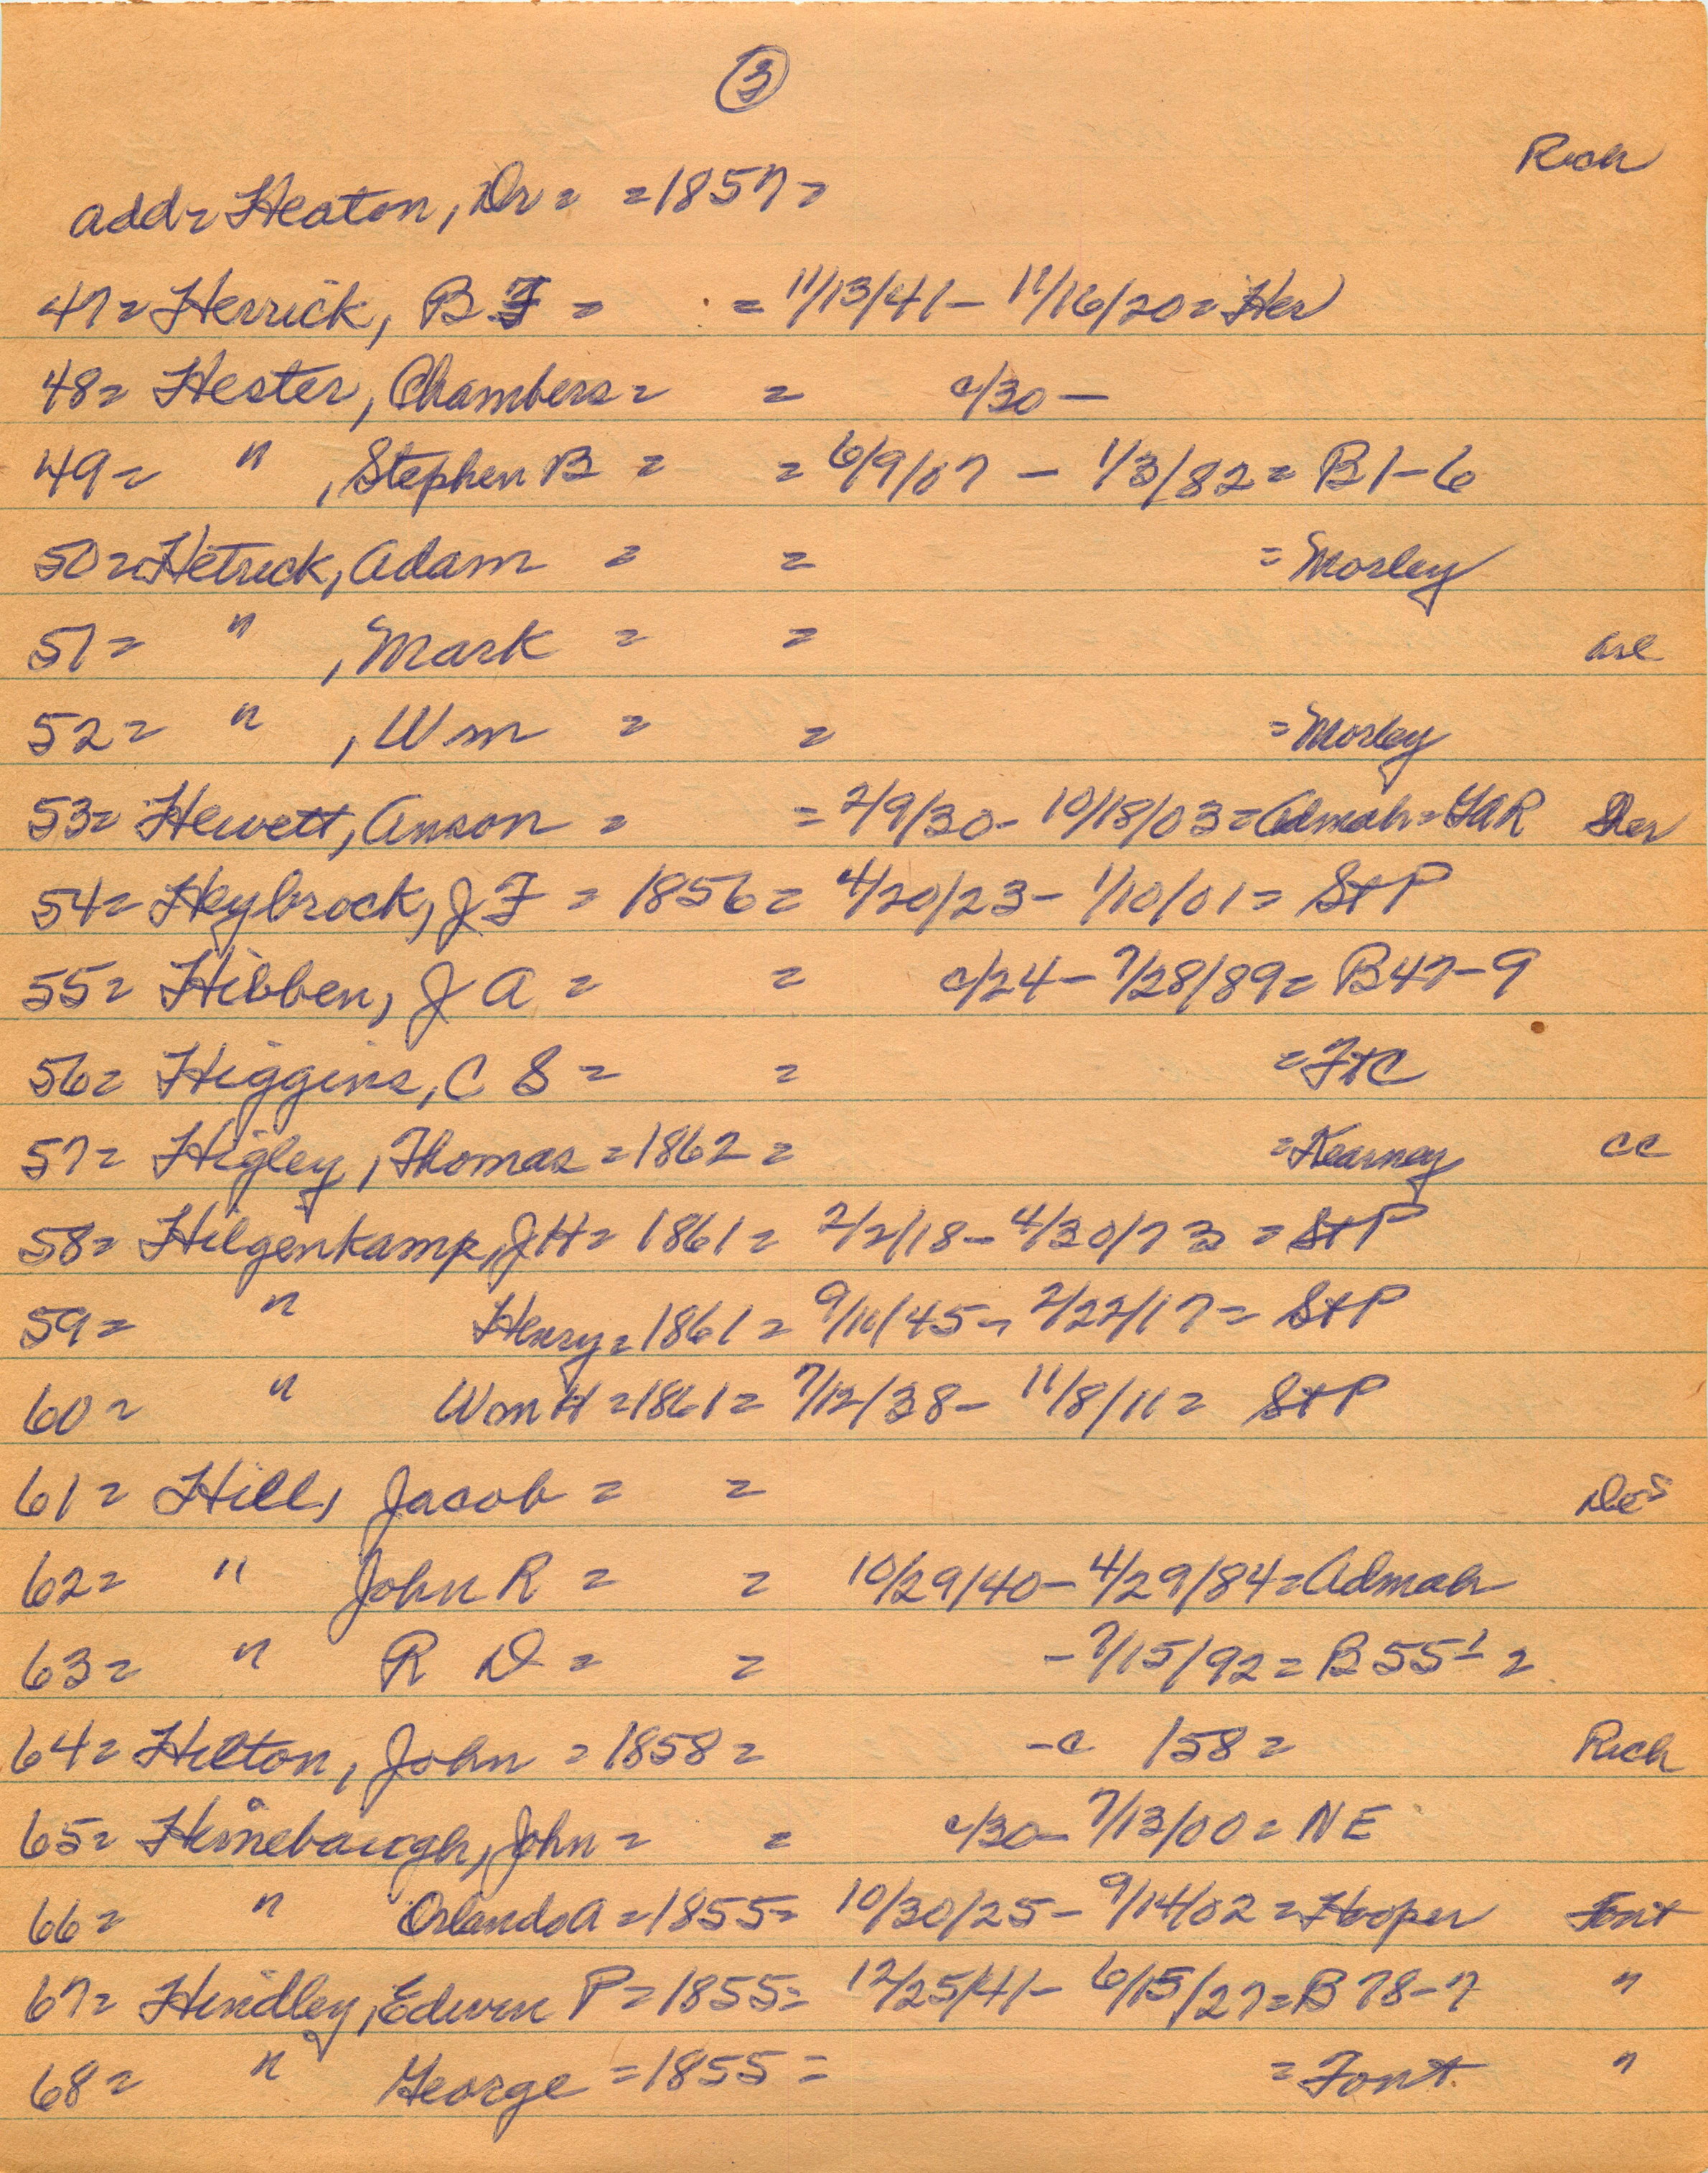 3
Rich
add= Heaton, Dr = =1857=
47= Herrick, B F = = 11/13/41- 11/16/20= Her
48= Hester, Chambers= = c/30 -
49= " , Stephen B = = 6/9/07 - 1/3/82= B1-6
50= Hetrick, Adam = = = Morley
51= " , Mark = =
52= " , Wm = = = Morley
53= Hewett, Anson = = 2/9/30- 10/18/03=Admah=GAR
54= Heybrock, J F = 1856= 4/20/23- 1/10/01= StP
55= Hibben, J A = = c/24- 7/28/89= B47-9
56= Higgins, C S = = =FtC
57= Higley, Thomas =1862= =Kearney CC
58= Hilgenkamp, JH= 1861= 2/2/18- 4/30/73 = StP
59= " Henry=1861= 9/11/45- 2/22/17= StP
60= " Wm H =1861= 7/12/38- 11/8/11= StP
61= Hill, Jacob = = DeS
62= " John R = = 10/29/40- 4/29/84=Admah
63= " R D = = -7/15/92= B55-
64= Hilton, John =1858= -c 158= Rich
65= Himebaugh, John = = c/30- 7/13/00= NE
66= " Orlando A =1855= 10/30/25- 9/14/02=Hooper Font
67= Hindley, Edwin P=1855= 12/25/41- 6/15/27=B 78-7 "
68= " George =1855= =Font. "